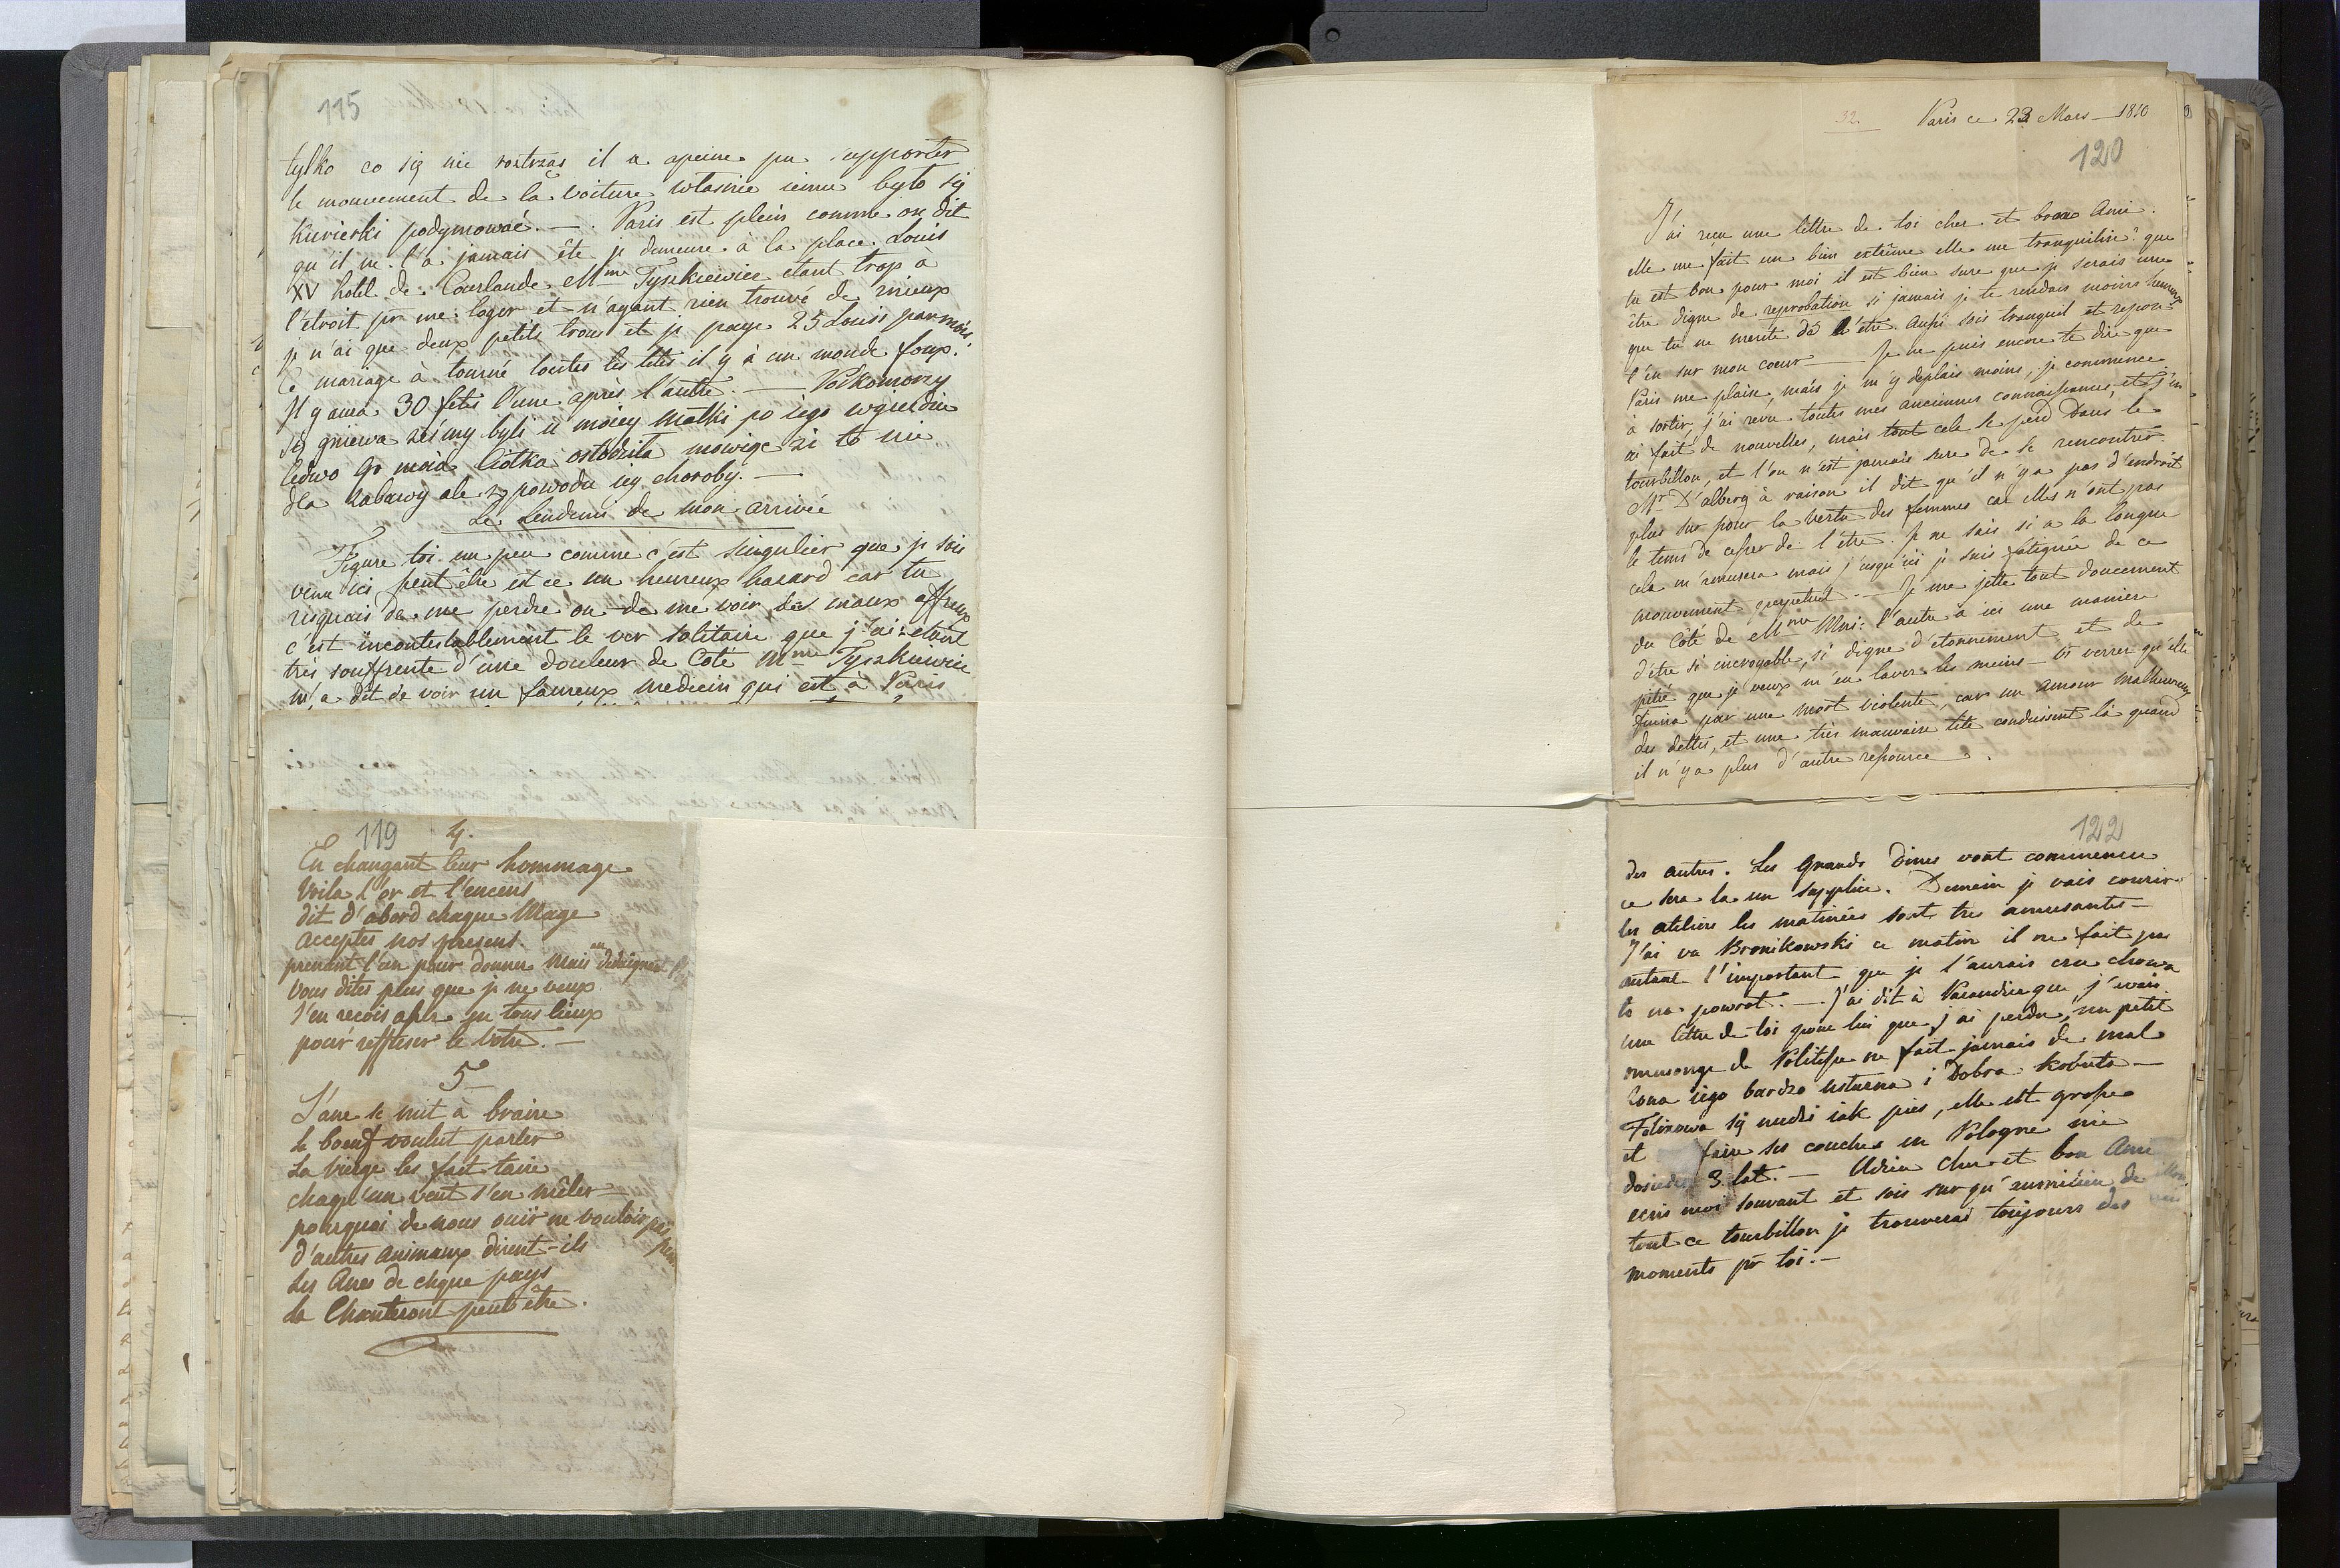 115
tylko co się nie rostrząs il a apeine pu supporter
le mouvement de la voiture właśnie iemu było się
Kurierki podymować. — . Paris est plein comme on dit
qu'il ne l'a jamais été je demeure à la place Louis
XV hotel de Courlande Mme Tyszkiewicz etant trop a
l'etroit pr me loger et n'ayant rien trouvé de mieux
je n'ai que deux petits trous et je paye 25 Louis par mois
Ce mariage à tourné toutes les têtes il y à un monde foux.
Il y aura 30 fêtes l'une après l'autre. — Podkomorzy
się gniewa żeśmy byli u moiey Matki po iego wyiezdzie
ledwo go moia Ciotka osłodziła mowiąc że to nie
dla zabawy ale z powodu iey choroby. —
Le Lendemis de mon arrivée
Figure toi un peu comme c'est singulier que je sois
venu ici peut être est ce un heureux hasard car tu
risquais de me perdre ou de me voir des maux affreux
c'est incontestablement le ver solitaire que j'ai: etant
très souffrente d'une douleur de Coté Mme Tyszkiewicz
m'a dit de voir un fameux medecin qui est à Paris
119 4.
En changant leur hommage
Voila l'or et l'encens
dit d'abord chaque Mage
acceptes nos presens.
prenant l'un pour donner mais en dedaignant
Vous dites plus que je ne veux
J'en reçois assez en tous lieux
pour reffuser le votre. —
5
L'ane se mit à braire
le boeuf voulut parler
La vierge les fait taire
chaqu'un veut s'en mêler
pourquoi de nous ouïr ne vouloir pas
d'autres animaux dirent-ils
Les Anes de chque pays
la Chanteront peut être.
32. Paris ce 23 Mars — 1810
120
J'ai reçu une lettre de toi cher et bon Ami.
elle me fait un bien extrême elle me tranquilise: que
tu est bon pour moi il est bien sure que je serais une
être digne de reprobation si jamais je te rendais moins heureux
que tu ne merite de l'être. Aussi sois tranquil et repose
t'en sur mon coeur — Je ne puis encore te dire que
Paris me plaise, mais je m'y deplais moins, je commence
à sortir, j'ai revu toutes mes anciennes connaissances, et j'en
ai fait de nouvelles, mais tout cela se perd dans le
tourbillon, et l'on n'est jamais sure de se rencontrer.
Mr D'alberg à raison il dit qu'il n'ya pas d'endroit
plus sur pour la vertu des femmes car elles n'ont pas
le tems de cesser de l'être. Je ne sais si a la longue
cela m'amusera mais j'usqu'ici je suis fatiguée de ce
mouvement perpetuel. — Je me jette tout doucement
du Coté de Mme l'autre à ici une maniere
d'être si incroyable, si digne d'etonnement et de
pitié que je veux m'en laver les mains — tu verrer qu'elle
finira par une mort violente, car un amour malheureux
des dettes, et une très mauvaise tête conduisent là quand
il n'ya plus d'autre ressource.
122
des autres. Les Grands Diners vont commencer
ce sera la un supplice. Demain je vais courir
les ateliers les matinées sont tres amusantes —
J'ai vu Bronikowski ce matin il ne fait pas
autant l'important que je l'aurais cru chowa
to na powrot. — . J'ai dit à que j'avais
une lettre de toi pour lui que j'ai perdu, un petit
mensonge de Politesse ne fait jamais de mal
Zona iego bardzo usłużna i Dobra kobieta —
Felixowa się nudzi iak pies, elle est grosse
et faire ses couches en Pologne nie
3 lat. — Adieu Cher et bon Ami
ecris moi souvant et sois sur qu'aumilieu de
tout ce tourbillon je trouverai toujours des
moments pr toi. —